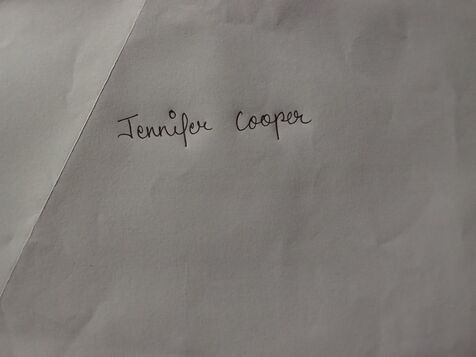 Jennifer Cooper